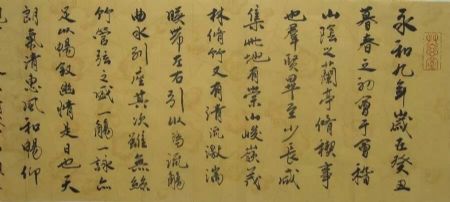 永和九年歲在癸丑
暮春之初會于會稽
山陰之蘭亭脩禊事
也羣賢畢至少長咸
集此地有崇山峻嶺茂
林脩竹又有清流激湍
暎帶左右引以為流觴
曲水列座其次雖無絲
竹管弦之盛一觴一詠亦
足以暢敘幽情是日也天
朗氣清惠風和暢仰